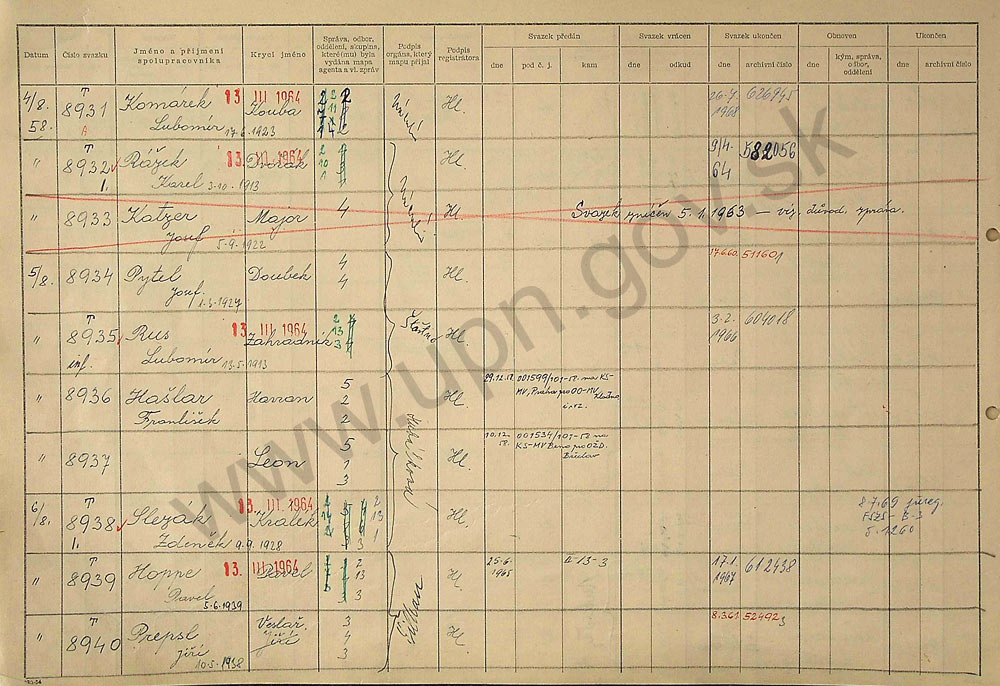 Datum
Číslo svazku
Jméno a příjmení
spolupracovníka
Krycí jméno
Správa, odbor,
oddělení, skupina,
které(mu) byla
vydána mapa
agenta a vl. zpráv
Podpis
orgána, který
mapu přijal
Podpis
registrátora
Svazek předán
dne
pod č. j.
kam
Svazek vrácen
dne
odkud
Svazek ukončen
dne
archivní číslo
Obnoven
dne
kým, správa,
odbor,
oddělení
Ukončen
dne
archivní číslo
4/8.
58.
T
8931
A
Komárek
Lubomír 17.6.1923
13. III. 1964
Kouba
Hl.
26.7.
1968
626945
"
T
8932
1.
Rážek
Karel 3.10.1913
13. III. 1964
Dvořák
2
10
1
Hl.
9/4.
64
582056
"
8933
Katzer
Josef 5.9.1922
Major
4
Hl
Svazek zničen 5.1.1963 — viz. důvod. zpráva.
5/8.
8934
Pytel
Josef 1.3.1927
Doubek
4
4
Hl.
17.6.60. 511601
"
T
8935
inf.
Rus
Lubomír 13.5.1913
13. III. 1964
Zahradník
2
13
3
Hl.
3.2.
1966
604018
"
8936
Hašlar
František
Havran
5
2
2
Hl.
29.12.58.
001599/101-58. na KS-
MV, Praha pro OO-MV
Kladno
"
8937
Leon
5
1
3
Hl.
10.12.
58.
001534/101-58 na
KS-MV Brno pro OZD.
Břeclav
6/8.
T
8938
1.
Slezák
Zdeněk 9.9.1928
13. III. 1964
Králík
2
13
1
3
Hl.
8.7.69 přereg.
FSZS-B-3
5.1260
"
T
8939
Hoppe
Pavel 5.6.1939
13. III. 1964
Pavel
2
13
3
Hl.
25.6.
1965
II-13-3
17.1.
1967
612438
"
8940
Prepsl
Jiří 10.5.1938
Veslař.
Jiří
3
4
3
Hl.
8.3.61. 524923
www.upn.gov.sk